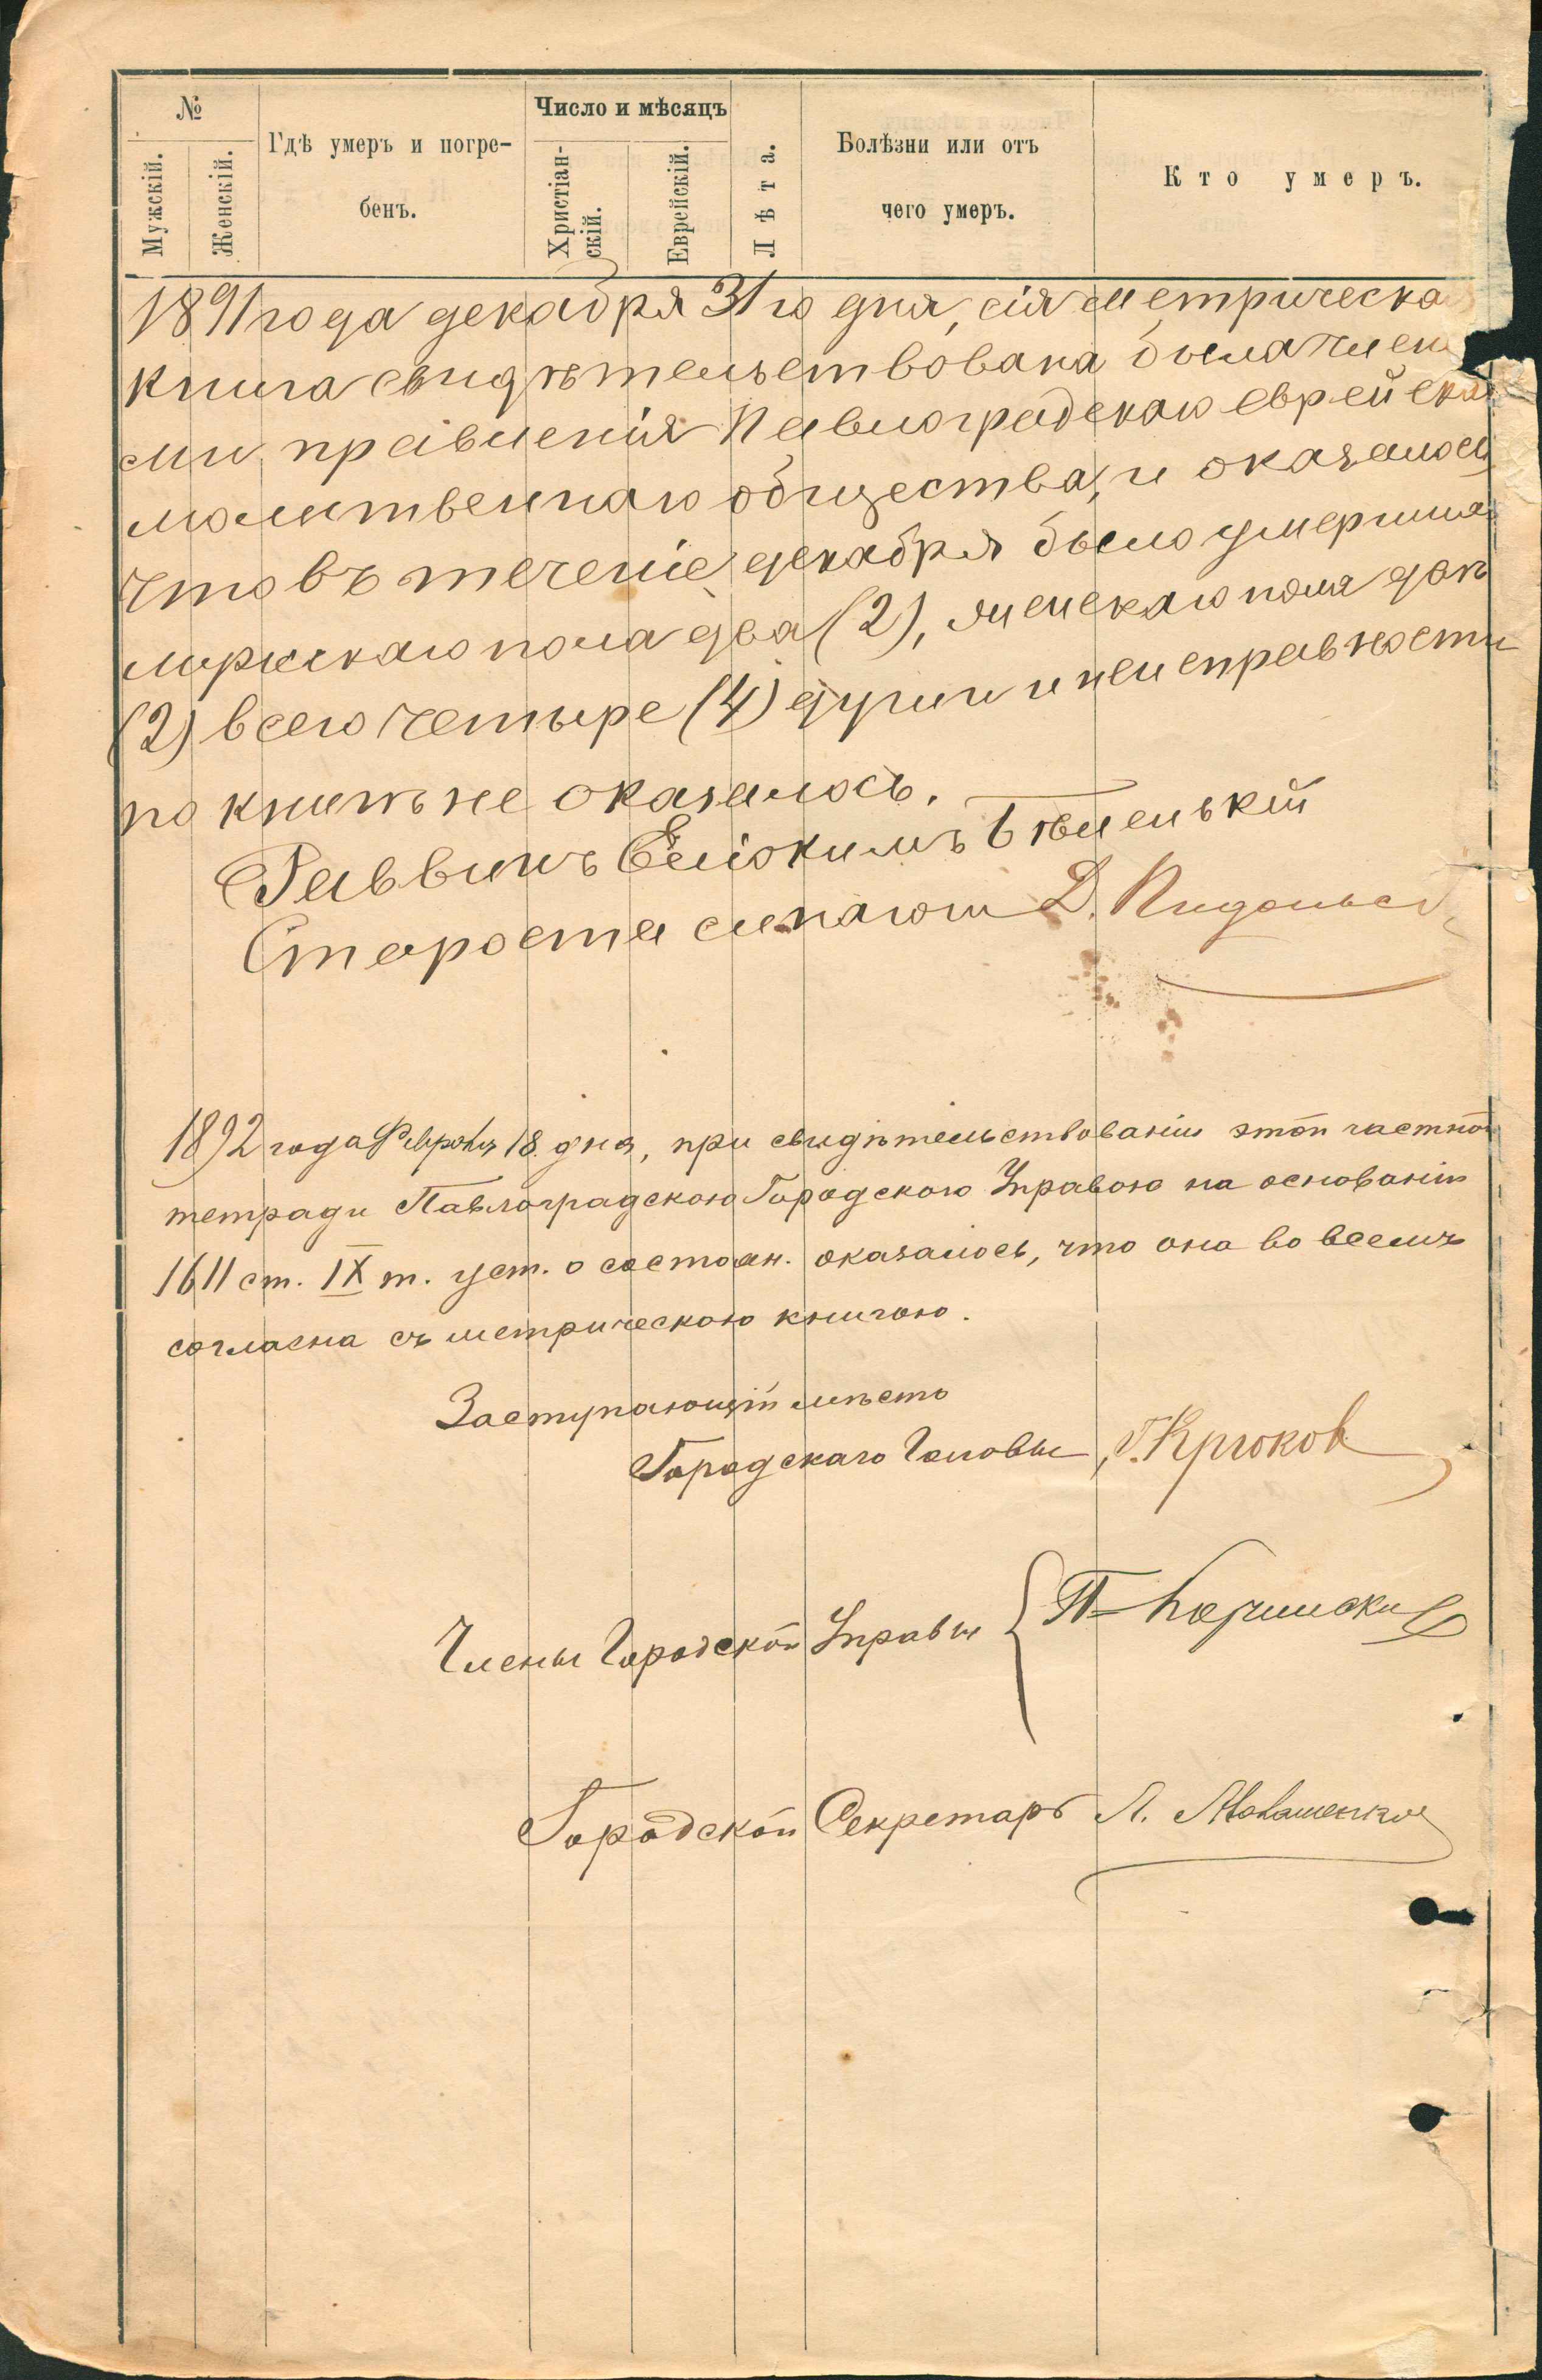 №
Мужскій.
Женскій.
Гдѣ умеръ и погре-
бенъ.
Число и мѣсяцъ
Христіан-
скій.
Еврейскій.
Лѣта.
Болѣзни или отъ
чего умеръ.
Кто умеръ.
1891 года декабря 31го дня, сія метрическа
книга свидѣтельствована была члена
ми правленія Павлоградскаго еврейска
молитвеннаго общества, и оказалось
что въ теченіе декабря было умерших
мужскаго пола два (2), женскаго пола двѣ
(2) всего четыре (4) души и неисправности
по книгѣ не оказалось.
Раввинъ Еліокимъ Бѣленькій
Староста синагоги Д.
1892 года Февраля 18 дня, при свидѣтельствованіи этой частной
тетради Павлоградскою Городскою Управою на основаніи
1611 ст. IX т. уст. о состоян. оказалось, что она во всемъ
согласна съ метрическою книгою.
Заступающій мѣсто
Городскаго Головы, Г. Крюков
Члены Городской Управы П.
Городской Секретарь Л.